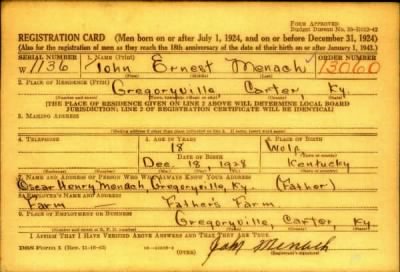 FORM APPROVED
REGISTRATION CARD (Men born on or after July 1, 1924, and on or before December 31, 1924)
(Also for the registration of men as they reach the 18th anniversary of the date of their birth on or after January 1, 1943.)
SERIAL NUMBER 1. NAME (Print) ORDER NUMBER
W 1136 John Ernest Menach 13060
(First) (Middle) (Last)
2. PLACE OF RESIDENCE (Print)
Gregoryville Carter Ky
(THE PLACE OF RESIDENCE GIVEN ON LINE 2 ABOVE WILL DETERMINE LOCAL BOARD
JURISDICTION; LINE 2 OF REGISTRATION CERTIFICATE WILL BE IDENTICAL)
3. MAILING ADDRESS
[Mailing address if other than place indicated on line 2. If same, insert word same]
4. TELEPHONE 5. AGE IN YEARS 6. PLACE OF BIRTH
18 Wolf
DATE OF BIRTH
Dec. 18, 1928 Kentucky
7. NAME AND ADDRESS OF PERSON WHO WILL ALWAYS KNOW YOUR ADDRESS
Oscar Henry Menach, Gregoryville, Ky. (Father)
8. EMPLOYER'S NAME AND ADDRESS
Farm Father's Farm
9. PLACE OF EMPLOYMENT OR BUSINESS
Gregoryville Carter, Ky
I AFFIRM THAT I HAVE VERIFIED ABOVE ANSWERS AND THAT THEY ARE TRUE.
DSS Form 1
John Menach
(Registrant's signature)